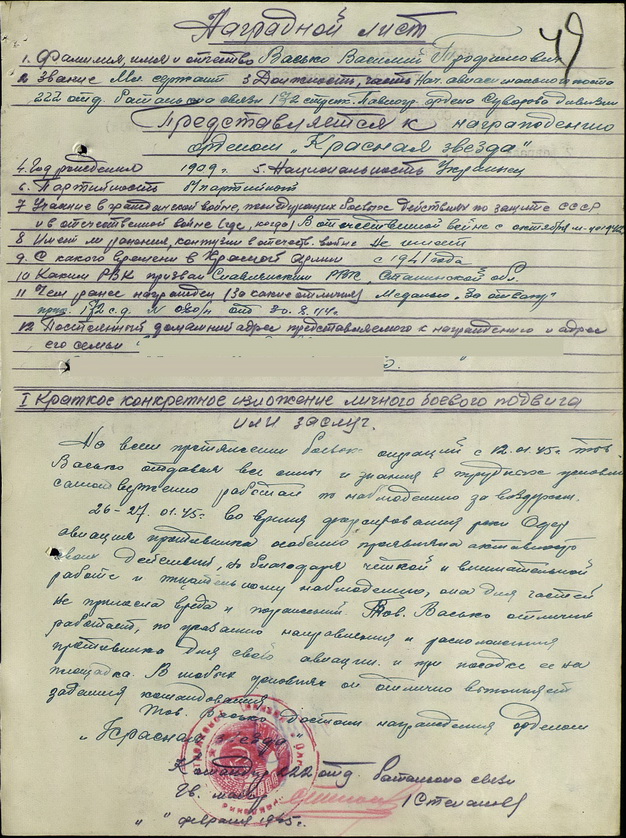 Наградной лист
49
1. Фамилия, имя и отчество Васько Василий Трофимович
2. Звание Мл. сержант 3 Должность, часть Нач. авиасигнального поста
222 отд. батальона связи 172 стрелк. Павлогр. ордена Суворова дивизии
Представляется к награждению
орденом „Красная звезда"
4. Год рождения 1909 г. 5. Национальность Украинец
6. Партийность б/партийный
7 Участие в гражданской войне, последующих боевых действиях по защите СССР
и в отечественной войне (где, когда) В отечественной войне с октября м-ца 1942
8 Имеет ли ранения, контузии в отечеств. войне Не имеет
9. С какого времени в Красной Армии с 1941 года
10 Каким РВК призван Славянским РВК, Сталинской обл.
11 Чем ранее награжден (за какие отличия) Медалью „За отвагу"
прик. 172 с.д. № 080/н от 30.8.44 г.
12 Постоянный домашний адрес представляемого к награждению и адрес
его семьи
I Краткое конкретное изложение личного боевого подвига
или заслуг.
На всем протяжении боевых операций с 12.01.45 г. тов.
Васько отдавая все силы и знания в трудных условиях
самоотверженно работал по наблюдению за воздухом.
26-27.01.45 г. во время форсирования реки Одер
авиация противника особенно проявляла активность
своих действий, но благодаря четкой и внимательной
работе и тщательному наблюдению, она для частей
не принесла вреда и поражений. Тов. Васько отлично
работает, по указанию направления и расположения
противника для своей авиации и при посадке ее на
площадка. В любых условиях он отлично выполняет
задания командования
Тов. Васько достоин награждения орденом
„Красная звезда"
Командир 222 отд. батальона связи
Гв. майор /Степанов/
„ " февраля 1945 г.